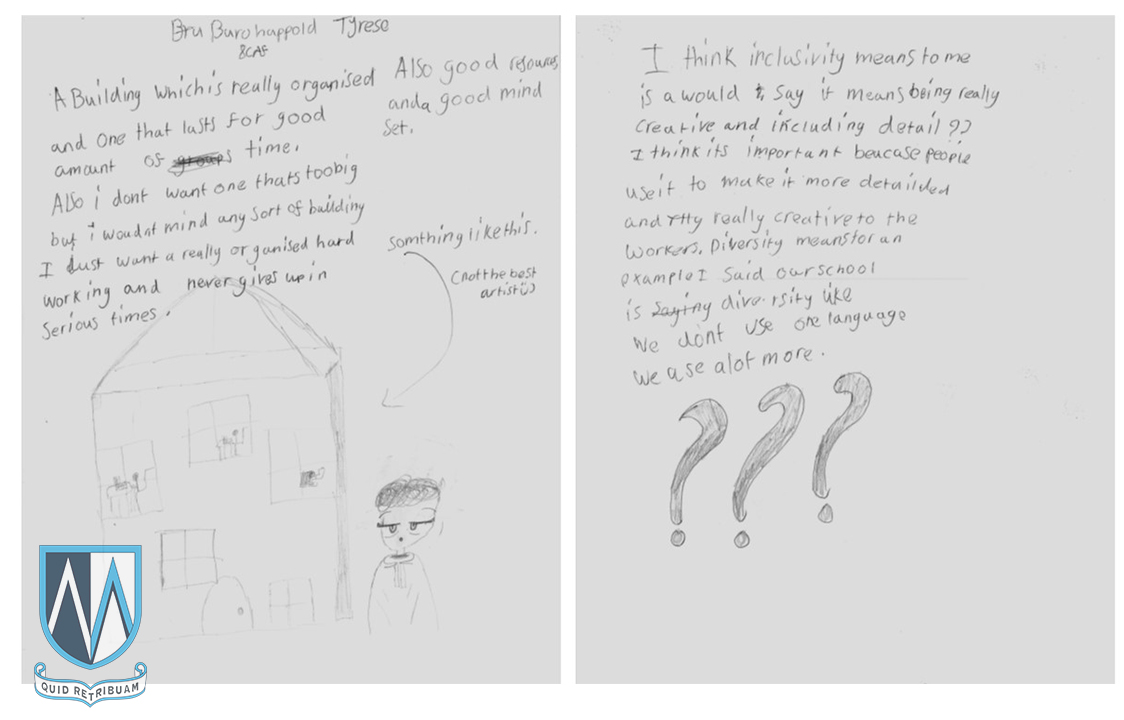 Bru Burohappold Tyrese
8CAF
A Building which is really organised
and one that lasts for good
amount of time.
Also i dont want one thats too big
but i woudnt mind any sort of building
I Just want a really organised hard
working and never gives up in
serious times.
Also good resources
and a good mind
set.
somthing like this.
(not the best
artist :))
QUID RETRIBUAM
I think inclusivity means to me
is a would say it means being really
creative and including detail ??
I think its important beucase people
use it to make it more detailded
and really creative to the
workers. Diversity means for an
example I said our school
is diversity like
We dont use one language
We use alot more.
???